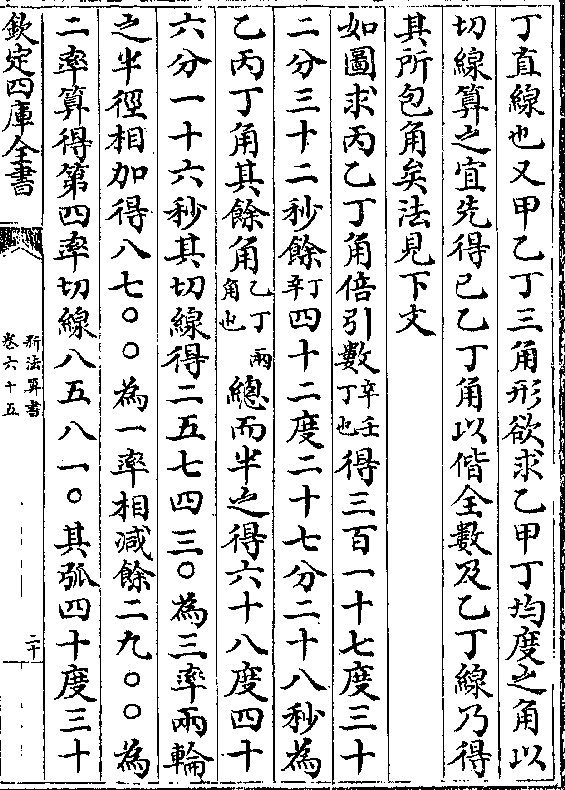 丁直線也又甲乙丁三角形欲求乙甲丁均度之角以
切線算之宜先得已乙丁角以偕全數及乙丁線乃得
其所包角矣法見下文
如圖求丙乙丁角倍引數辛壬丁也得三百一十七度三十
二分三十二秒餘丁辛四十二度二十七分二十八秒為
乙丙丁角其餘角乙丁兩角也總而半之得六十八度四十
六分一十六秒其切線得二五七四三〇為三率兩輪
之半徑相加得八七〇〇為一率相減餘二九〇〇為
二率算得第四率切線八五八一〇其弧四十度三十
欽定四庫全書
新法算書
卷六十五
二十